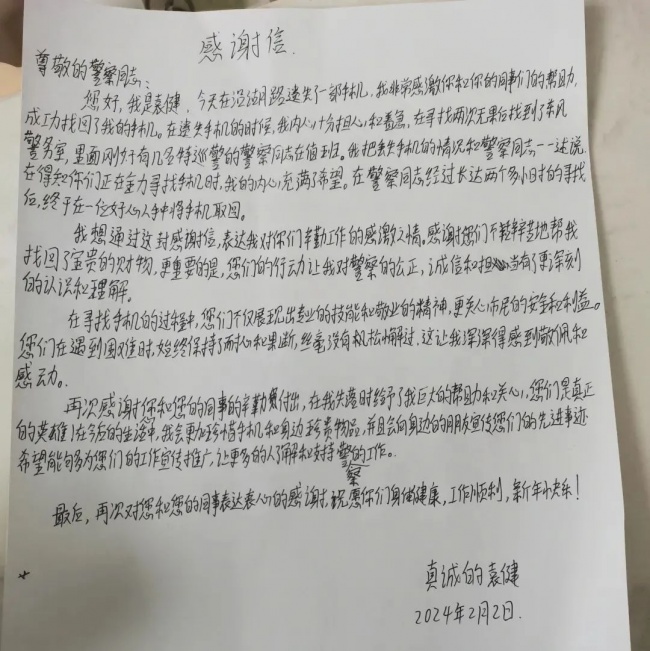 感谢信.
尊敬的警察同志:
您好,我是袁健,今天在沿湖路遗失了一部手机,我非常感激你和你的同事们的帮助,
成功找回了我的手机。在遗失手机的时候,我内心十分担心和着急,在寻找两次无果后找到了东风
警务室,里面刚好有几名特巡警的警察同志在值班。我把丢失手机的情况和警察同志一一述说,
在得知你们正在全力寻找手机时,我的内心充满了希望。在警察同志经过长达两个多小时的寻找
位,终于在一位好心人手中将手机取回。
我想通过这封感谢信,表达我对你们辛勤工作的感激之情。感谢您们不辞辛苦地帮我
找回了宝贵的财物,更重要的是,您们的行动让我对警察的公正,诚信和担当有了更深刻
的认识和理解。
在寻找手机的过程中,您们不仅展现出专业的技能和敬业的精神,更关心市民的安全和利益。
您们在遇到困难时,始终保持了耐心和果断,丝毫没有松懈过,这让我深深得感到敬佩和
感动。
再次感谢你和您的同事的辛勤付出,在我失落时给予了我巨大的帮助和关心,您们是真正
的英雄!在今后的生活中,我会更加珍惜手机和身边珍贵物品,并且会向身边的朋友宣传您们的先进事迹
希望能够多为您们的工作宣传推广,让更多的人了解和支持警察的工作。
最后,再次对您和您的同事表达衷心的感谢,祝愿你们身体健康,工作顺利,新年快乐!
真诚的袁健
2024年2月2日.